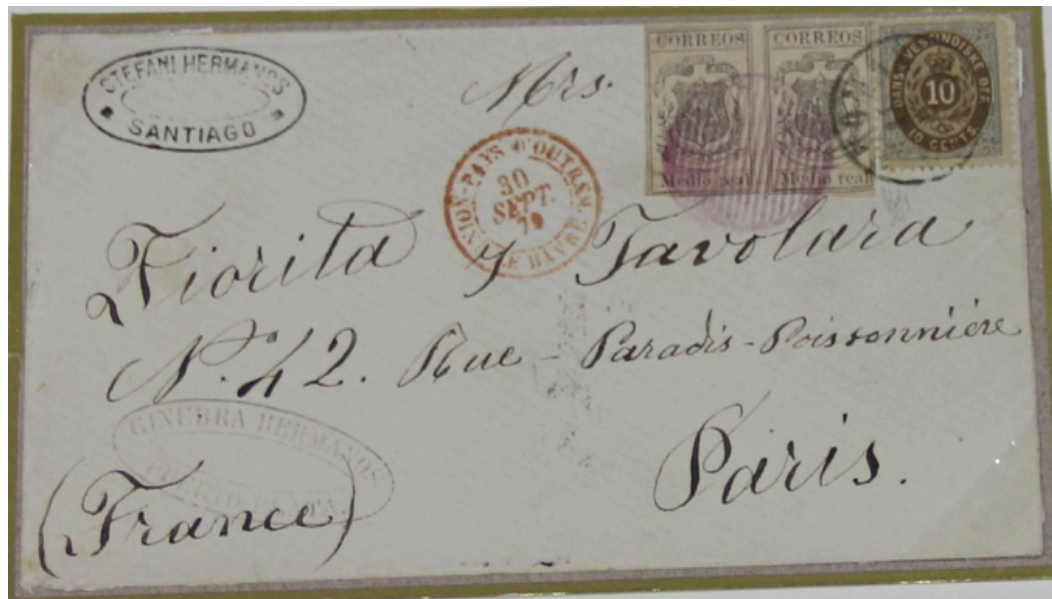 STEFANI HERMANOS
SANTIAGO
CORREOS
Medio real
CORREOS
Medio real
DANSK VESTINDISKE
10
10 CENTS
Mrs.
UNION-PAYS D'OUTRE-
30
SEPT.
79
LE HAVRE
Fiorita y Tavolara
N. 42. Rue - Paradis - Poissonnière
GINEBRA HERMANOS
PUERTO PLATA
Paris.
(France)